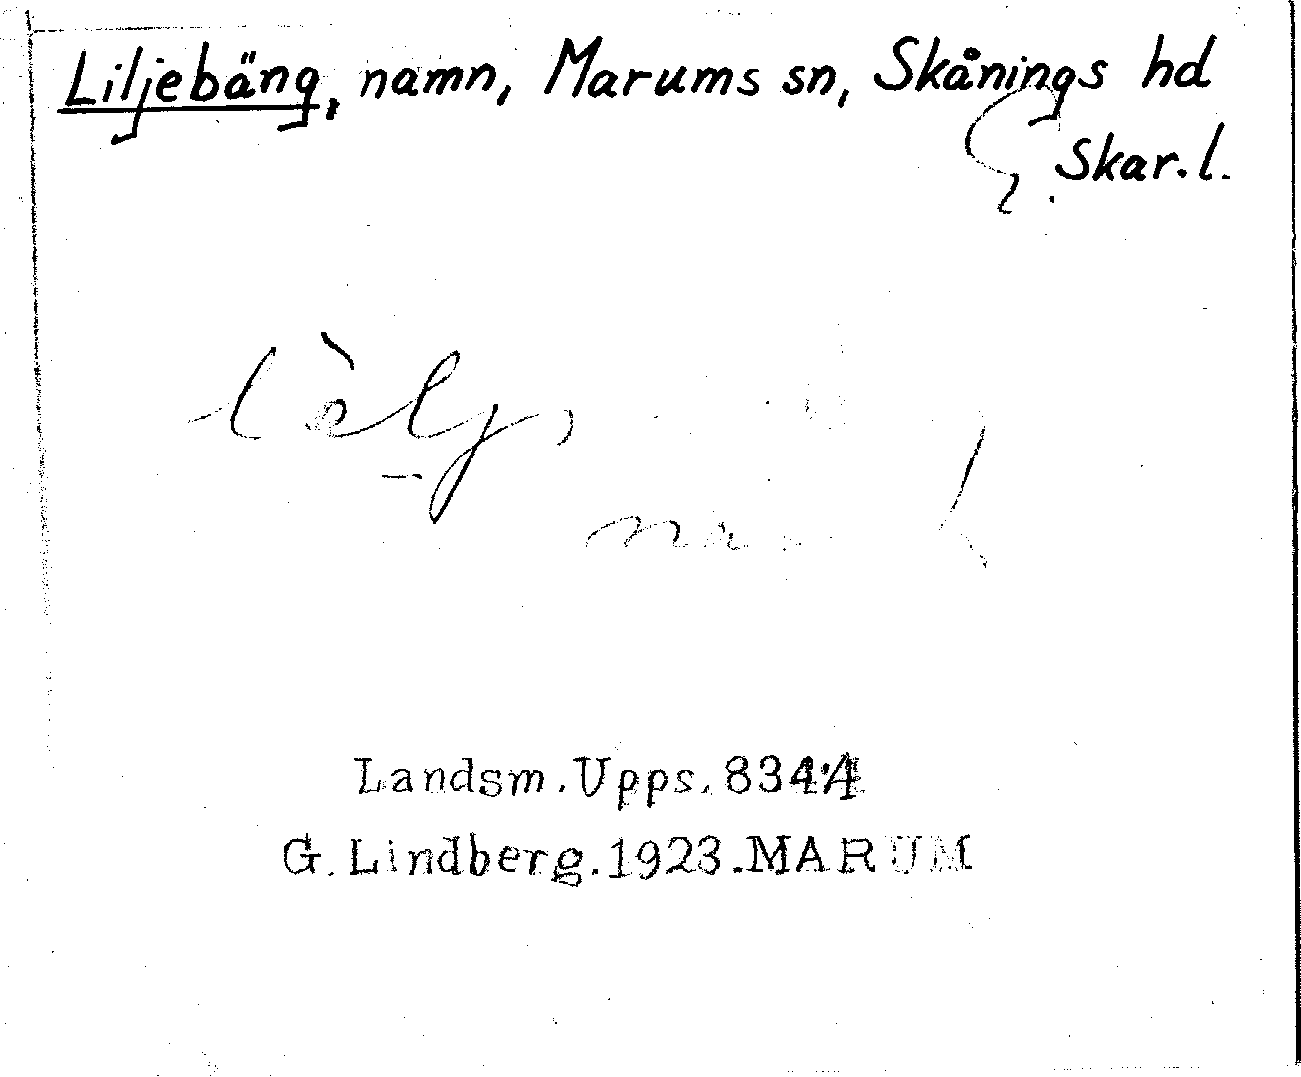 Liljebäng, namn, Marums sn, Skånings hd
Skar. l.
Landsm. Upps. 834:4
G. Lindberg. 1923. MARUM